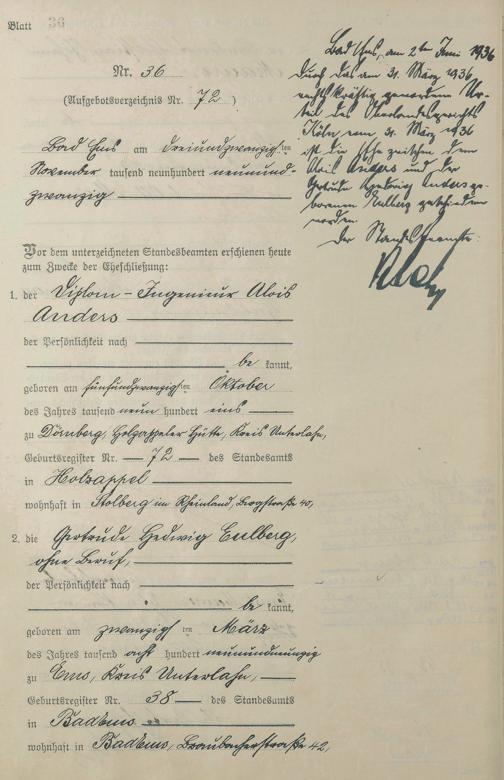 Blatt 36
Nr. 36
(Aufgebotsverzeichnis Nr. 72)
Bad Ems am dreiundzwanzigsten
November tausend neunhundert neunund-
zwanzig
Vor dem unterzeichneten Standesbeamten erschienen heute
zum Zwecke der Eheschließung:
1. der Diplom-Ingenieur Alois
Anders
der Persönlichkeit nach
be kannt,
geboren am fünfundzwanzigsten Oktober
des Jahres tausend neun hundert eins
zu Dörnberg, Holzappeler Hütte, Kreis Unterlahn,
Geburtsregister Nr. 72 des Standesamts
in Holzappel
wohnhaft in Stolberg im Rheinland, Burgstraße 40,
2. die Gertrude Hedwig Eulberg,
ohne Beruf,
der Persönlichkeit nach
be kannt,
geboren am zwanzigsten März
des Jahres tausend acht hundert neunundneunzig
zu Ems, Kreis Unterlahn,
Geburtsregister Nr. 38 des Standesamts
in Bad Ems
wohnhaft in Bad Ems, Braubacherstraße 42,
Bad Ems, am 2ten Juni 1936
Durch das am 31. März 1936
rechtskräftig gewordene Ur-
teil des Oberlandesgerichts
Köln vom 31. März 1936
ist die Ehe zwischen dem
Alois Anders und der
Gertrude Hedwig Anders ge-
borenen Eulberg geschieden
worden.
Der Standesbeamte: